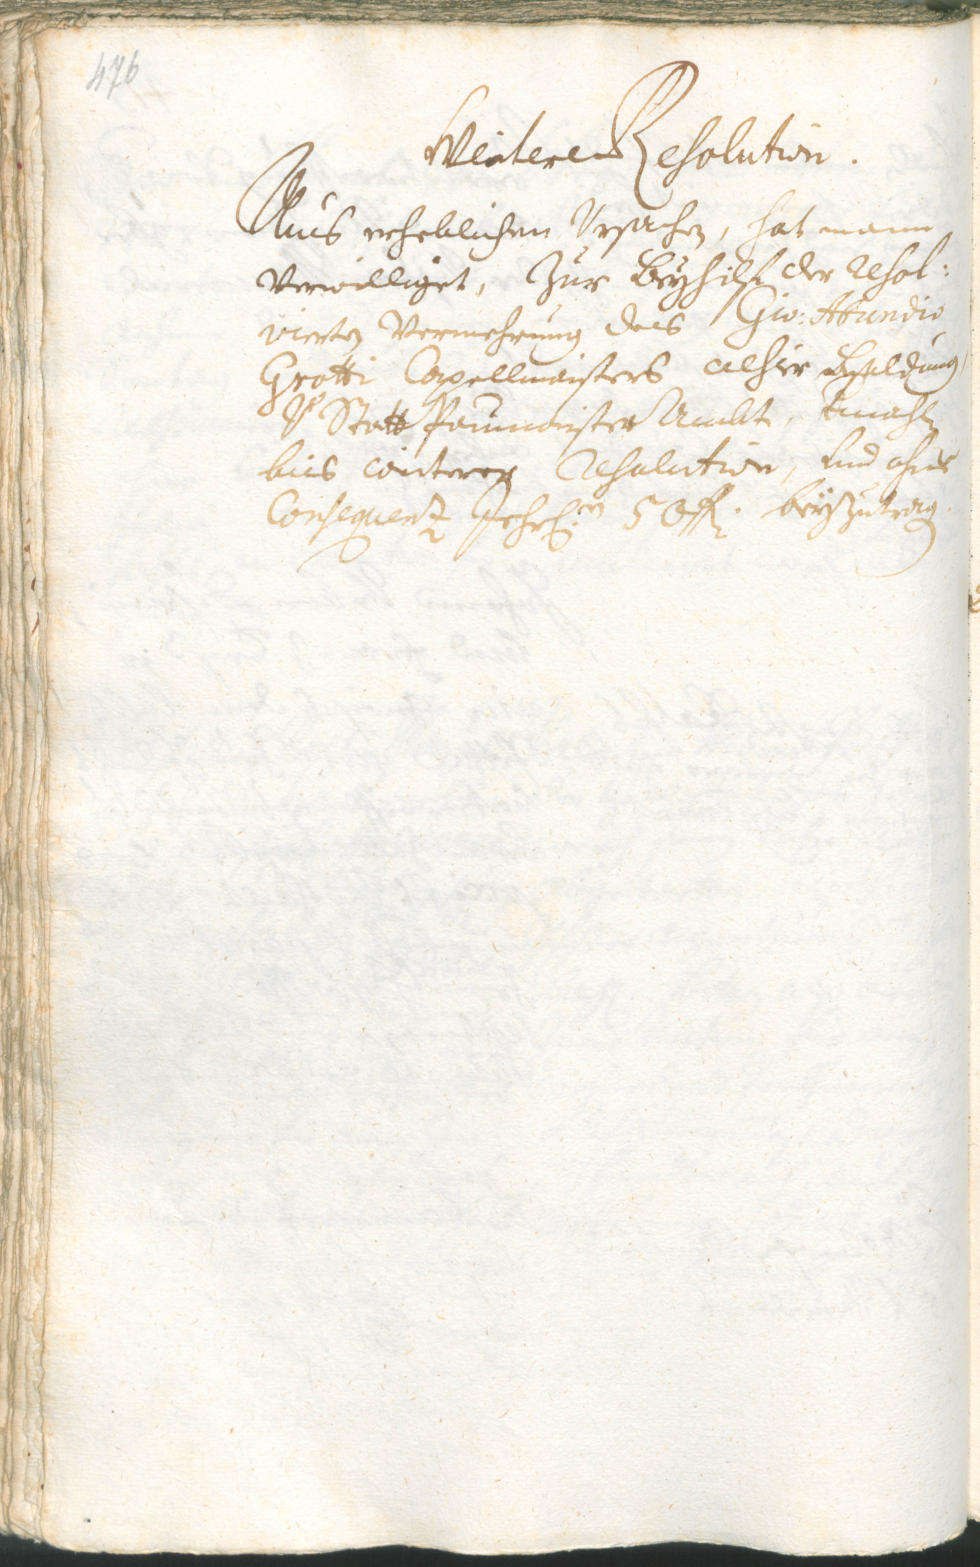 476
Weitere Resolution.
Aus erheblichen Ursachen, hat mann
Verwilliget, Zur Beyhilf der resol:
vierten Vermehrung des Gio: Abundio
Grotti Capellmaisters alhier Besoldung
Statt Paumaister Ambt,
bis weiterer Resolution, und ohne
Consequenz Jehrl: 50 fl. beyzutragen.